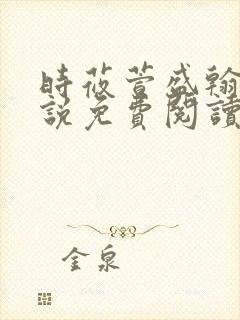 時莜萱盛翰
說免費閱讀
金泉